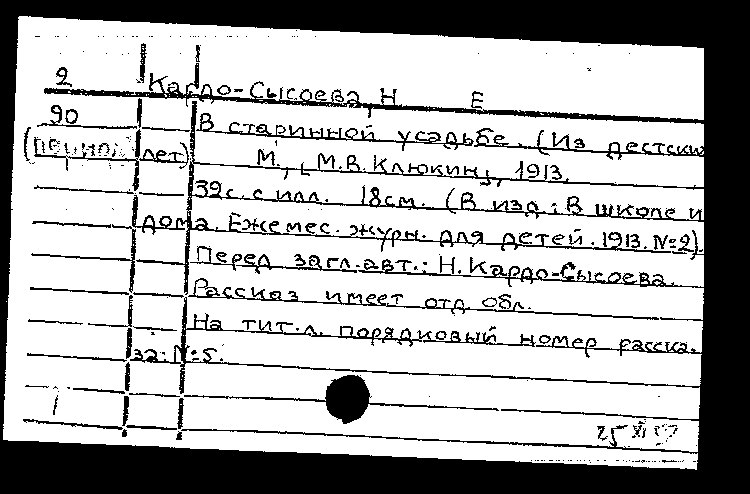 2 Кардо-Сысоева, Н Е
90 В старинной усадьбе. (Из дестских
(период лет) М., [М.В. Клюкин], 1913.
32с. с илл. 18см. (В изд.: В школе и
дома. Ежемес. журн. для детей. 1913. №2).
Перед загл. авт.: Н. Кардо-Сысоева.
Рассказ имеет отд. обл.
На тит. л. порядковый номер расска-
за: №5.
25 XI